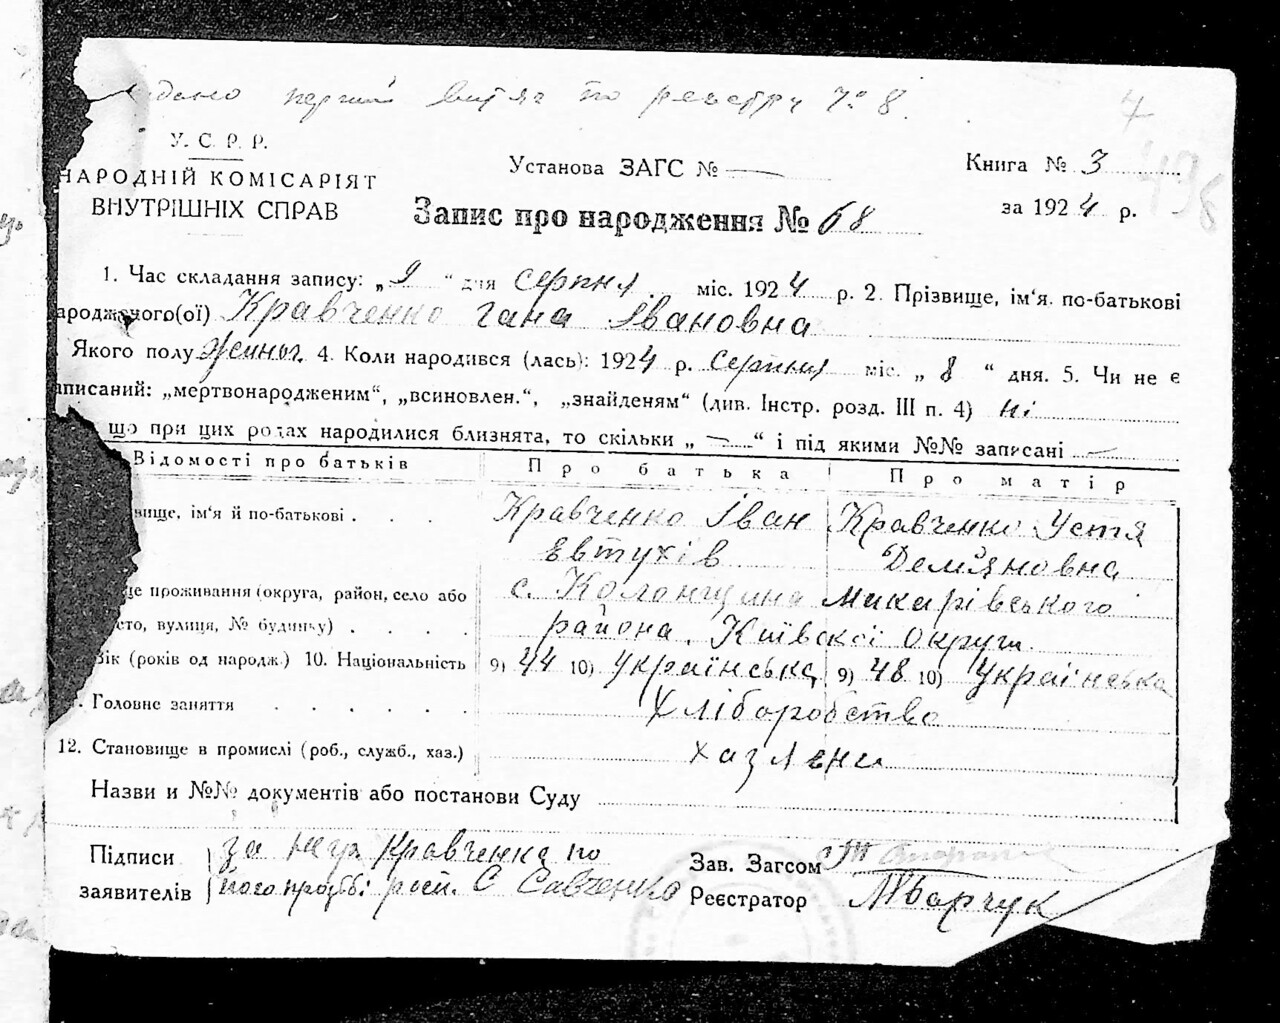 дано перший витяг по реєстру № 8.
7
У. С. Р. Р.
НАРОДНІЙ КОМІСАРІЯТ
ВНУТРІШНІХ СПРАВ
Установа ЗАГС № —
Книга № 3
за 1924 р.
Запис про народження № 68
1. Час складання запису: „9“ дня серпня міс. 1924 р. 2. Прізвище, ім'я. по-батькові
ародженого(ої) Кравченко Гана Івановна
Якого полу жиноч. 4. Коли народився (лась): 1924 р. серпня міс. „8“ дня. 5. Чи не є
аписаний: „мертвонародженим“, „всиновлен.“, „знайденям“ (див. Інстр. розд. III п. 4) ні
що при цих родах народилися близнята, то скільки „—“ і під якими №№ записані —
Відомості про батьків Про батька Про матір
вище, ім'я й по-батькові . . . Кравченко Іван Кравченко Устя
Евтухів Дем'яновна
це проживання (округа, район, село або с. Колонщина Макарівського
сто, вулиця, № будинку) . . . . района, Київської округи
Вік (років од народж.) 10. Національність 9) 44 10) українська 9) 48 10) українська
Головне заняття . . . . . . Хліборобство
12. Становище в промислі (роб., служб., хаз.) хазяени
Назви и №№ документів або постанови Суду
Підписи за Кравченка по
заявителів його прозьбі росп. С Савченко
Зав. Загсом
Реєстратор